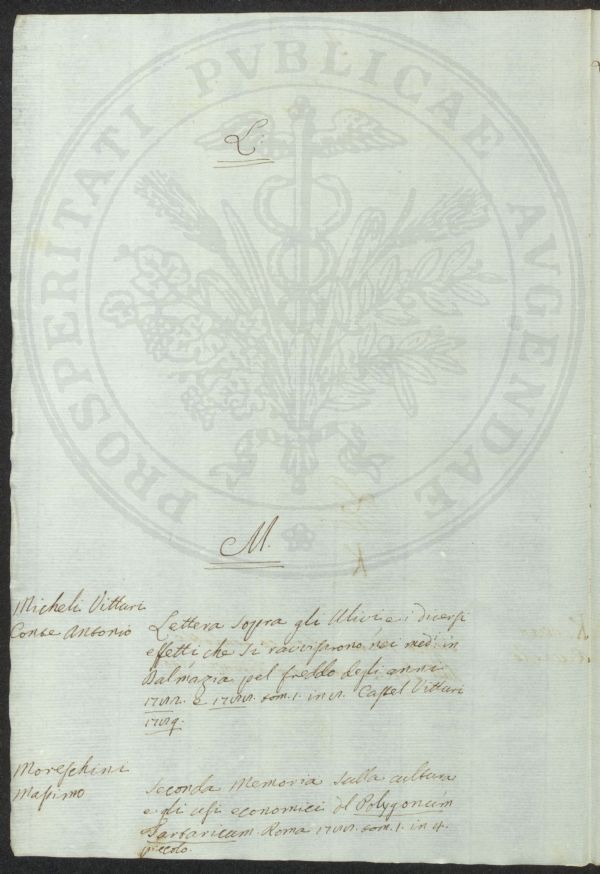 PROSPERITATI PVBLICAE AVGENDAE
L.
M.
Micheli Vitturi
Conte Antonio
Lettera sopra gli Ulivi e i diversi
effetti che si ravvisarono nei med: in
Dalmazia pel freddo degli anni
e tom. 1. in Castel Vitturi
Moreschini
Massimo
Seconda Memoria sulla cultura
e gli usi economici del Polygonum
Tartaricum. Roma tom. 1. in 4.
piccolo.